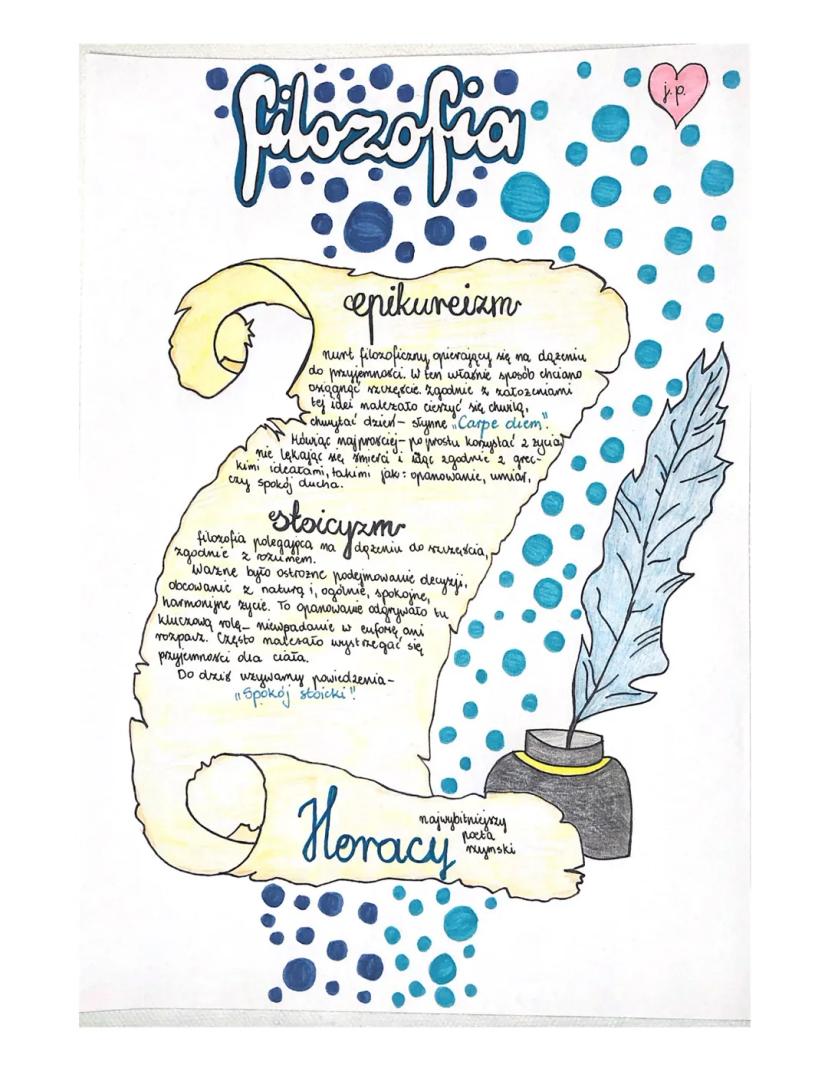 filozofia
j.p.
epikureizm
nurt filozoficzny, opierający się na dążeniu
do przyjemności. W ten właśnie sposób chciano
osiągnąć szczęście. Zgodnie z założeniami
tej idei należało cieszyć się chwilą,
chwytać dzień – słynne „Carpe diem".
Mówiąc najprościej – po prostu korzystać z życia,
nie lękając się śmierci i idąc zgodnie z grec-
kimi ideałami, takimi jak: opanowanie, umiar,
czy spokój ducha.
stoicyzm
filozofia polegająca na dążeniu do szczęścia,
zgodnie z rozumem.
Ważne było ostrożne podejmowanie decyzji,
obcowanie z naturą i, ogólnie, spokojne,
harmonijne życie. To opanowanie odgrywało tu
kluczową rolę – niewpadanie w euforię ani
rozpacz. Często należało wystrzegać się
przyjemności dla ciała.
Do dziś używamy powiedzenia –
„Spokój stoicki"!
Horacy
najwybitniejszy
poeta
rzymski